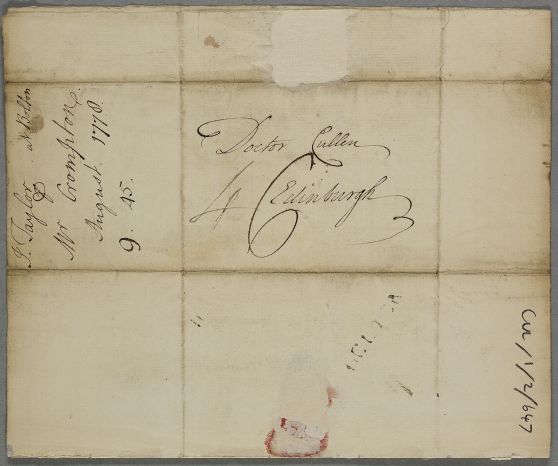 Doctor Cullen
Edinburgh
4
6
J. Taylor at Bolton
&
Mr Crompton.
August. 1778.
9. 45.
Cul/1/2/647